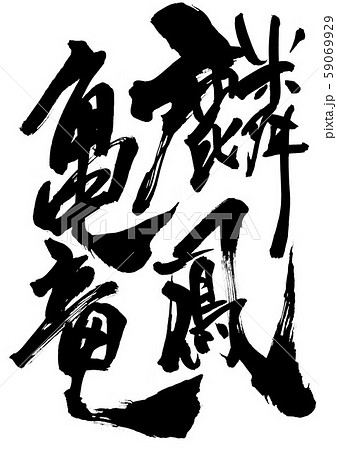 麟鳳
亀竜
PIXTA
pixta.jp - 59069929